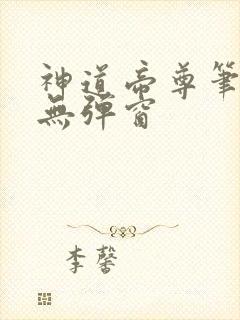 神道帝尊筆
無彈窗
李馨